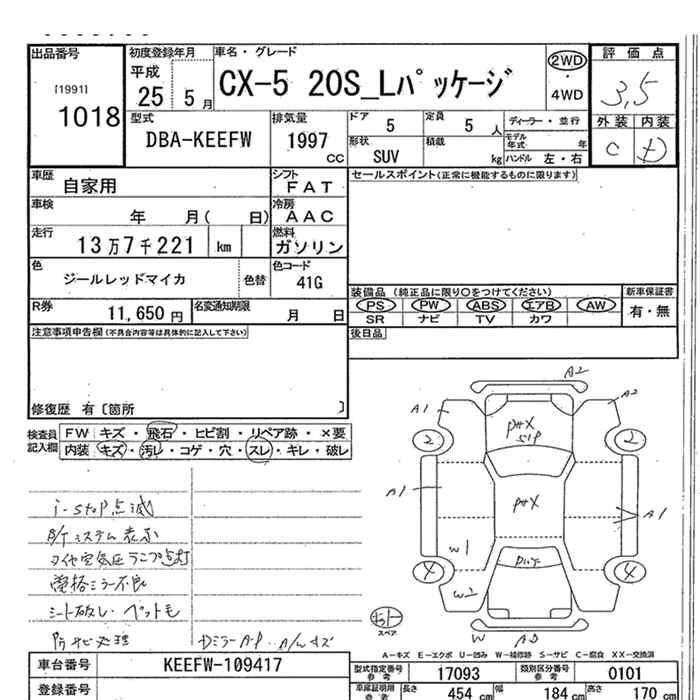 出品番号 初度登録年月 車名・グレード 評価点
[1991] 平成
1018 25 5月 CX-5 20S_Lパッケージ 2WD・4WD 3.5
型式 排気量 ドア 定員 ディーラー・並行 外装 内装
DBA-KEEFW 1997 CC 5 5人 モデル年式 年 C D
形状 積載
SUV kg ハンドル 左・右
車歴 シフト セールスポイント(正常に機能するものに限ります)
自家用 FAT
車検 冷房
年 月( 日) AAC
走行 燃料
13万7千221 km ガソリン
色 色コード
ジールレッドマイカ 色替 41G
装備品 (純正品に限り○をつけてください) 新車保証書
PS PW ABS エアB AW 有・無
SR ナビ TV カワ
R券 11,650円 名変通知期限 月 日
後日品
注意事項申告欄(不具合内容等は具体的に記入して下さい)
修復歴 有〔箇所 〕
検査員記入欄 FW キズ・飛石・ヒビ割・リペア跡・×要
内装 キズ・汚レ・コゲ・穴・スレ・キレ・破レ
A2
A1 A2
P+X
SIP
2 2
A1 P+X A1
W1
4 4
W2
W A3
スペア
i-stop点滅
B/Tシステム表示
タイヤ空気圧ランプ点灯
電格ミラー不良
シート破レ・ペット毛
防サビ処理 DミラーA・P・A/Wキズ
A-キズ E-エクボ U-凹み W-補修跡 S-サビ C-腐食 XX-交換済
車台番号 KEEFW-109417
型式指定番号 参考 17093 類別区分番号 参考 0101
登録番号
車庫証明用 参考 長さ 454 cm 幅 184 cm 高さ 170 cm